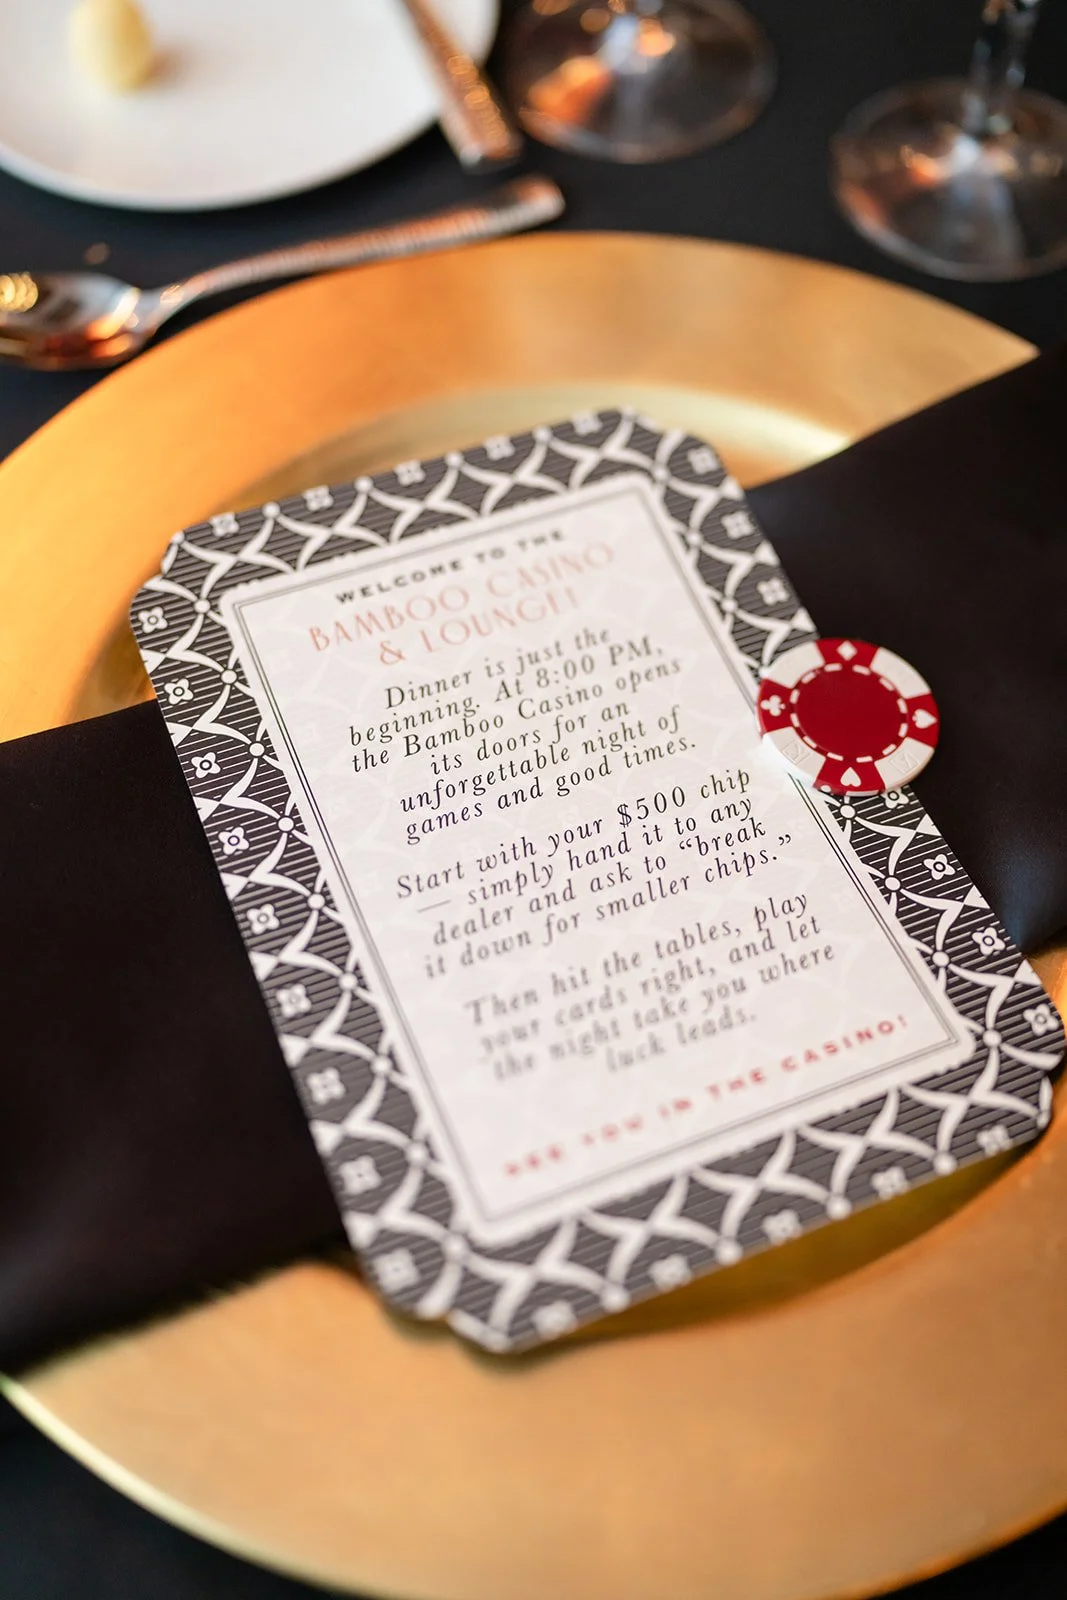 WELCOME TO THE
BAMBOO CASINO
& LOUNGE!
Dinner is just the
beginning. At 8:00 PM,
the Bamboo Casino opens
its doors for an
unforgettable night of
games and good times.
Start with your $500 chip
— simply hand it to any
dealer and ask to “break
it down for smaller chips.”
Then hit the tables, play
your cards right, and let
the night take you where
luck leads.
SEE YOU IN THE CASINO!